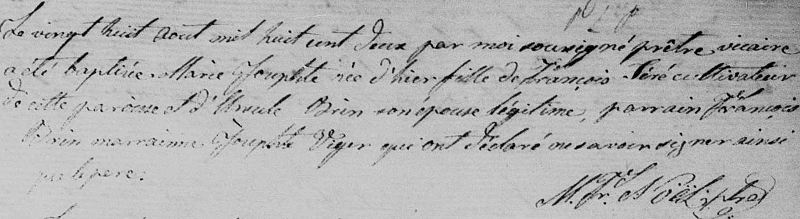 Le vingt huit Aout mil huit cent deux par moi soussigné prêtre vicaire
a été baptisée Marie Josephte née d'hier fille de François Piré cultivateur
de cette paroisse et d'Ursule Brin son epouse légitime, parrain François
Brin marrainne Josephte Viger qui ont déclaré ne savoir signer ainsi
que le pere.
M. Fr. X Noël ptre